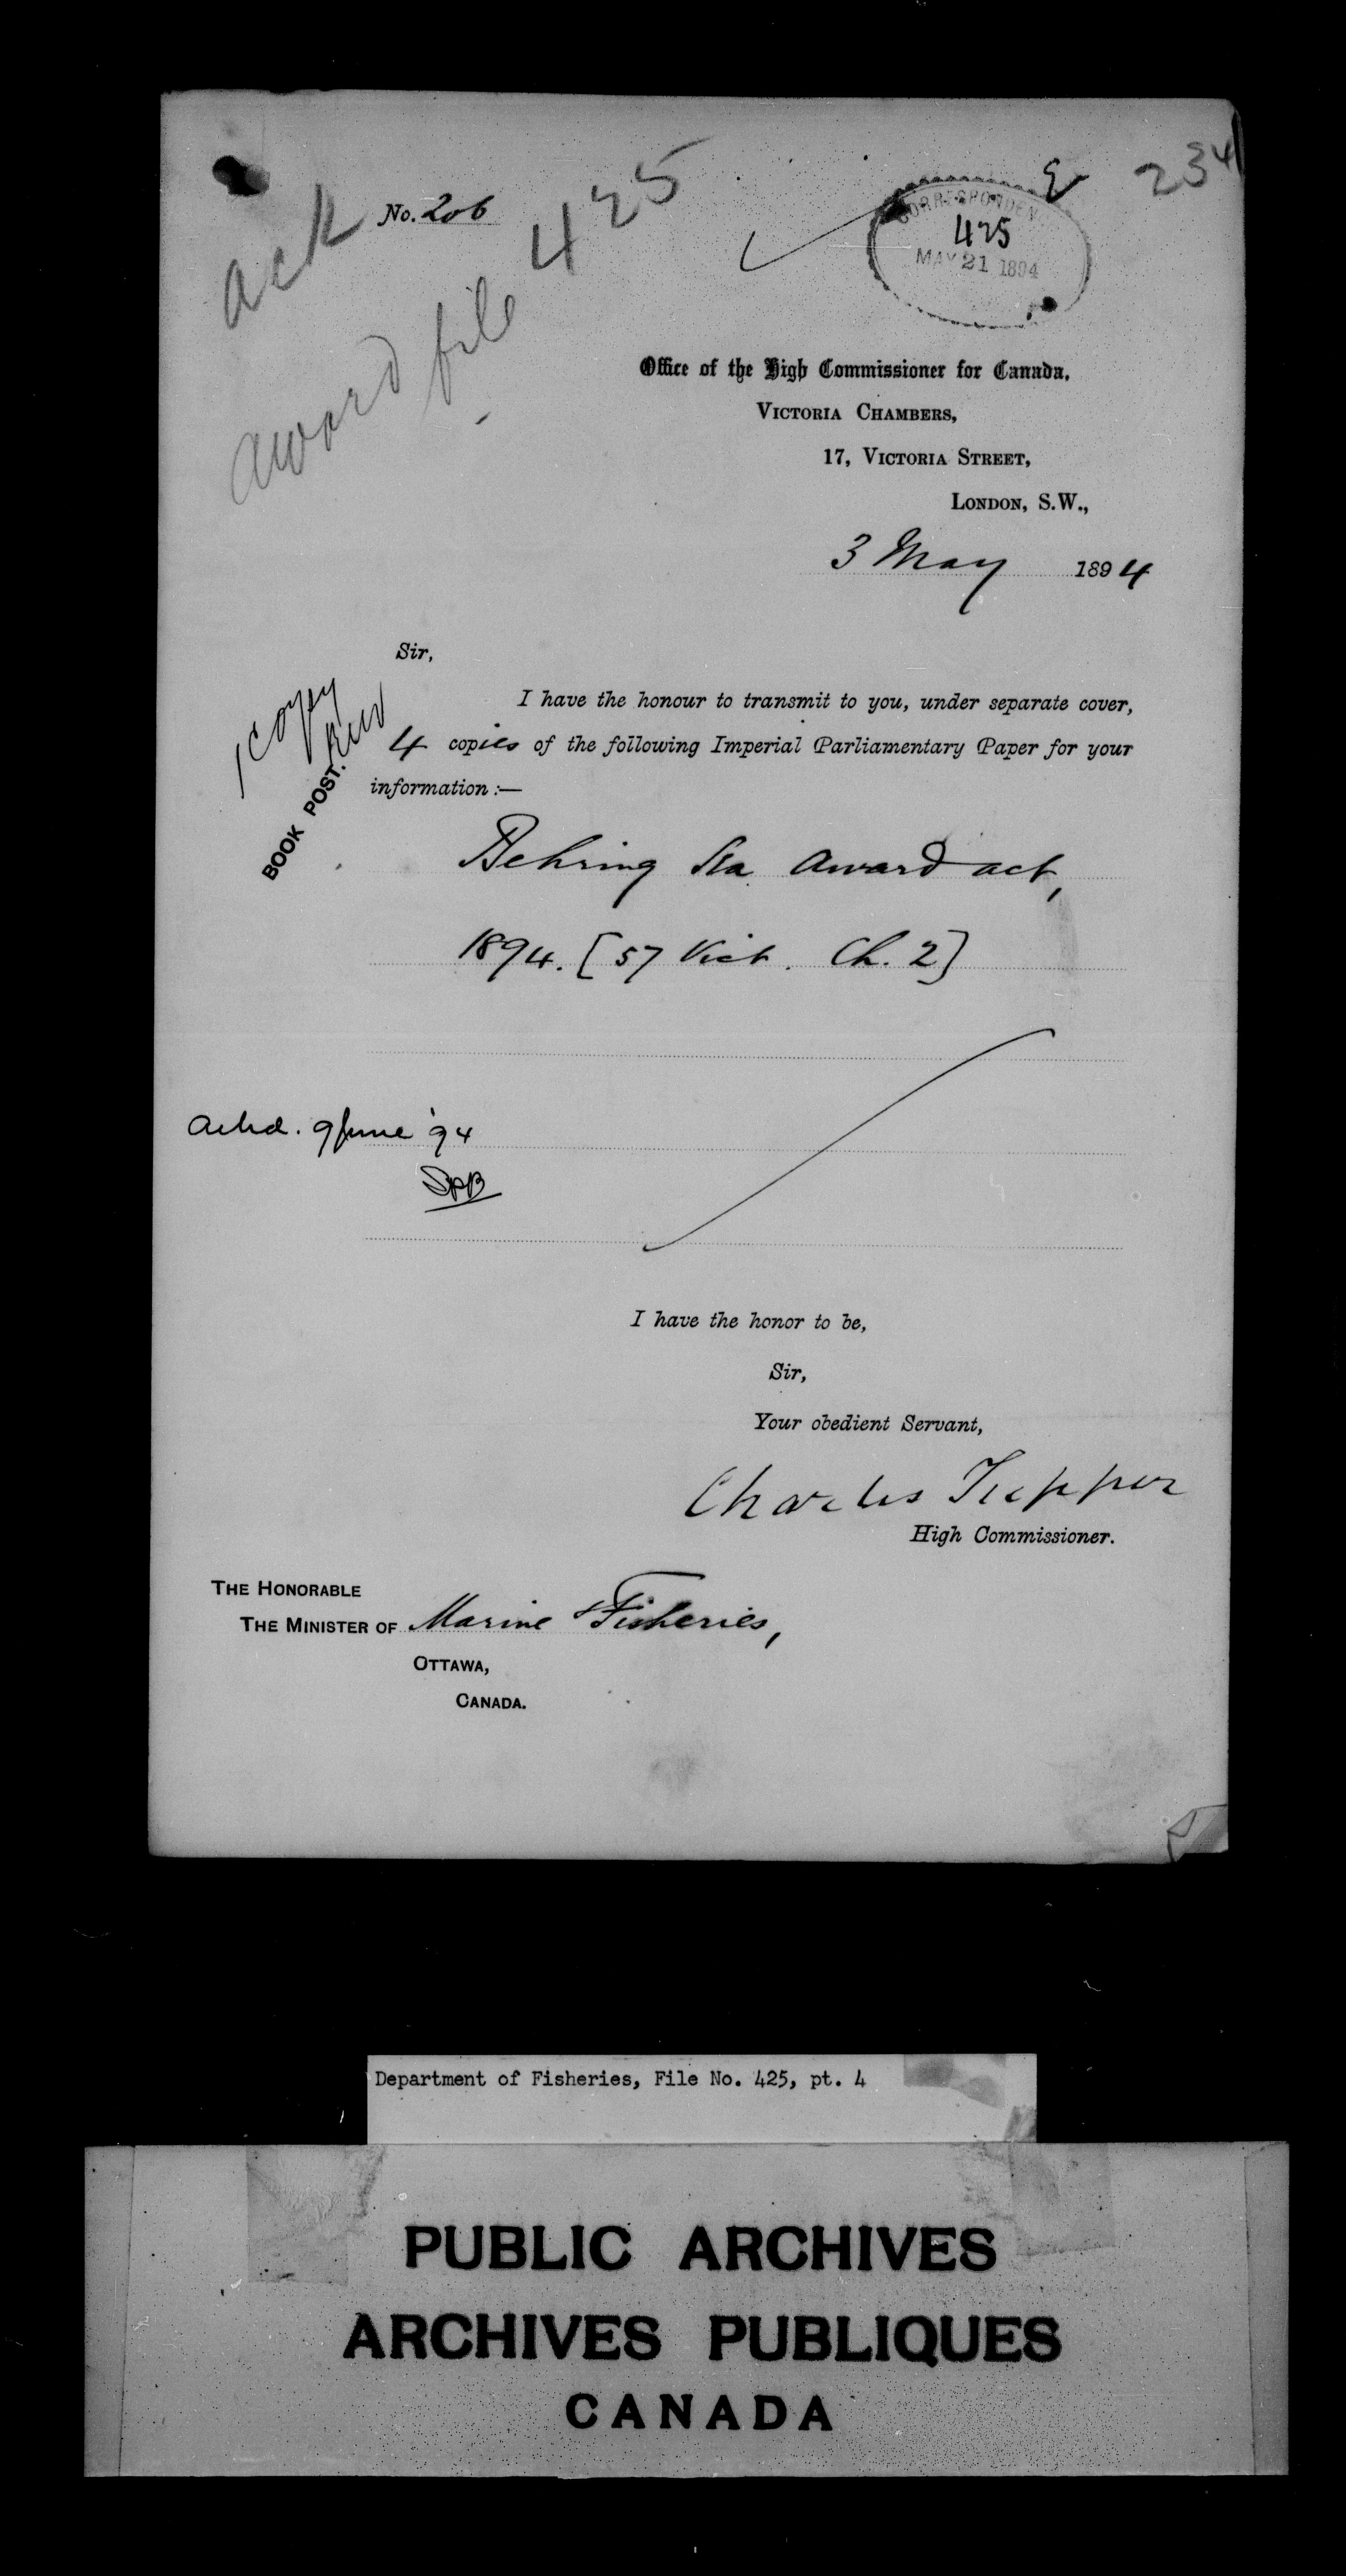 234
ack
No. 206
award file 425
CORRESPONDEN
425
MAY 21 1894
Office of the High Commissioner for Canada,
VICTORIA CHAMBERS,
17, VICTORIA STREET,
LONDON, S.W.,
3 May 1894
Sir,
I have the honour to transmit to you, under separate cover,
4 copies of the following Imperial Parliamentary Paper for your
information:—
1 copy
BOOK POST.
Behring Sea Award Act,
1894. [57 Vict. Ch. 2]
Ackd. 9 June '94
I have the honor to be,
Sir,
Your obedient Servant,
Charles Tupper
High Commissioner.
THE HONORABLE
THE MINISTER OF Marine & Fisheries,
OTTAWA,
CANADA.
Department of Fisheries, File No. 425, pt. 4
PUBLIC ARCHIVES
ARCHIVES PUBLIQUES
CANADA